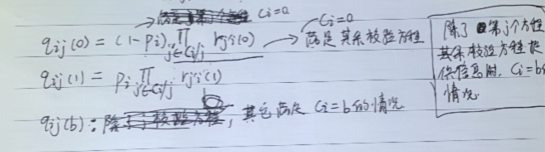 Ci=0
qij(0) = (1-Pi) ∏ j∈Ci/j rji(0) → Ci=0 满足其余校验方程
qij(1) = Pi ∏ j∈Ci/j rji(1)
qij(b): 其它满足 Ci=b 的情况
除了第j个方程
其余校验方程提
供信息时, Ci=b
情况